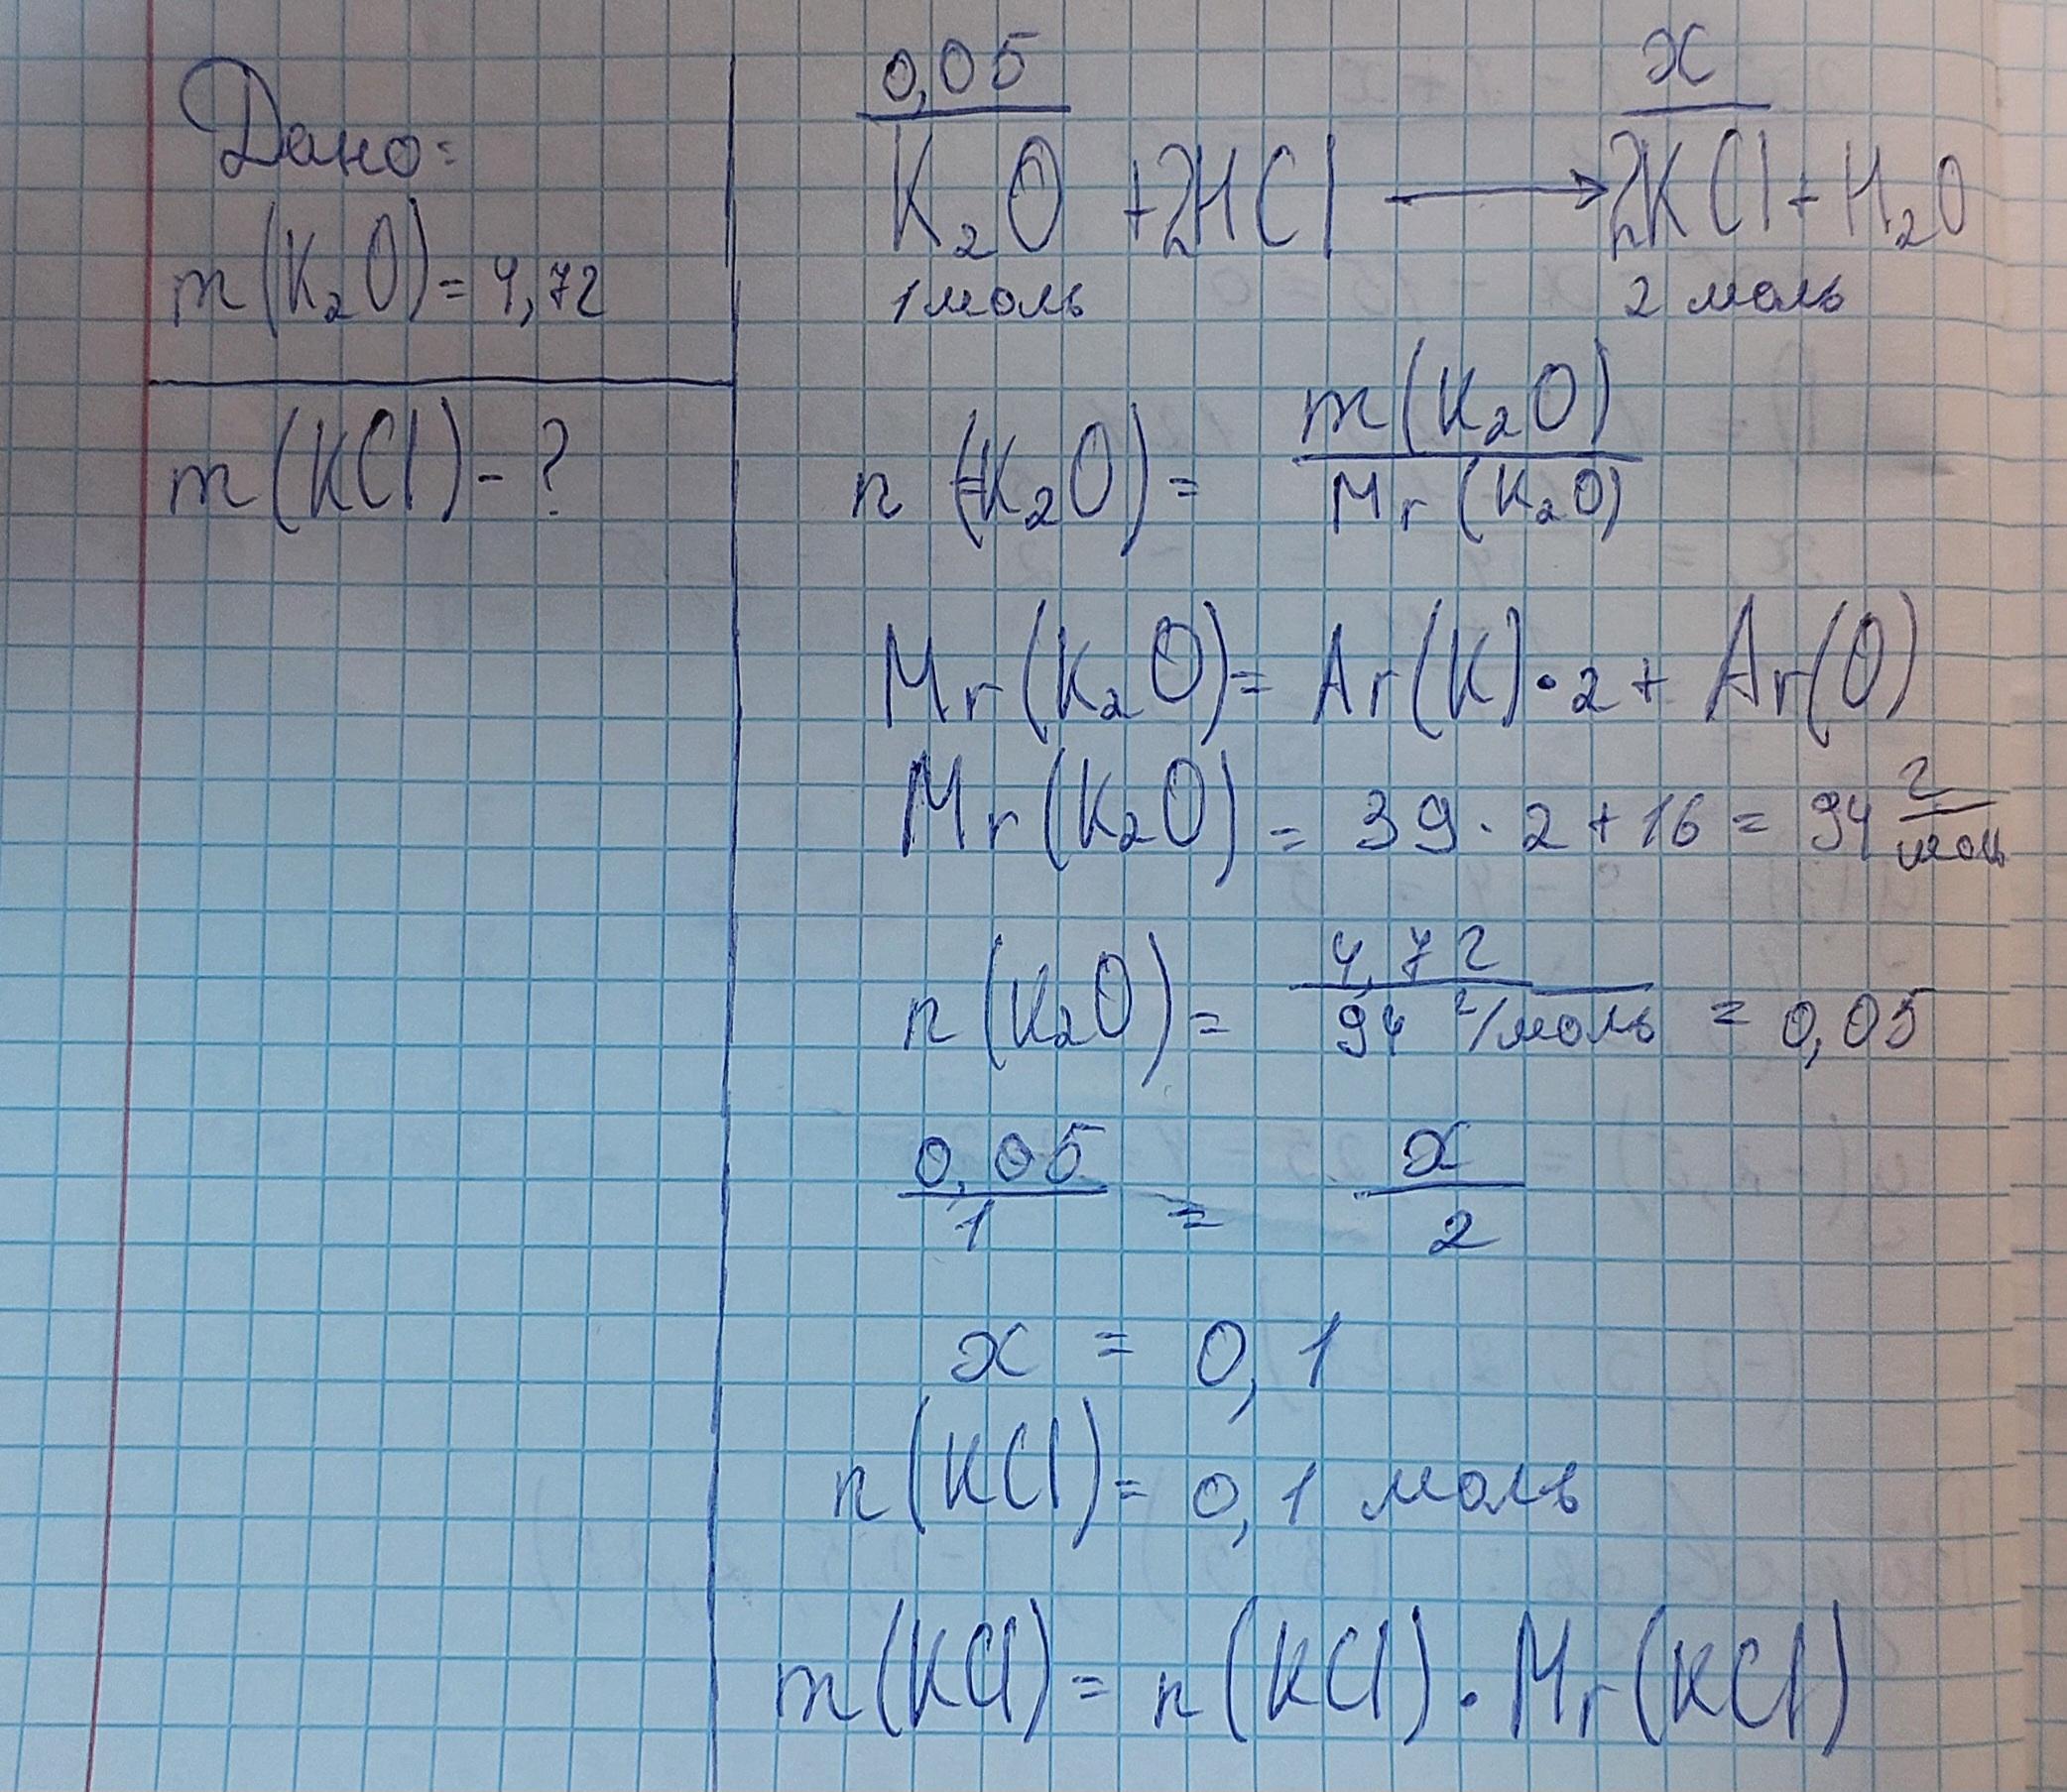 Дано:
m(K₂O) = 4,7г
m(KCl) - ?
0,05 x
K₂O + 2HCl ⟶ 2KCl + H₂O
1 моль 2 моль
n(K₂O) = m(K₂O) / Mr(K₂O)
Mr(K₂O) = Ar(K) · 2 + Ar(O)
Mr(K₂O) = 39 · 2 + 16 = 94 г/моль
n(K₂O) = 4,7г / 94 г/моль = 0,05
0,05 / 1 = x / 2
x = 0,1
n(KCl) = 0,1 моль
m(KCl) = n(KCl) · Mr(KCl)